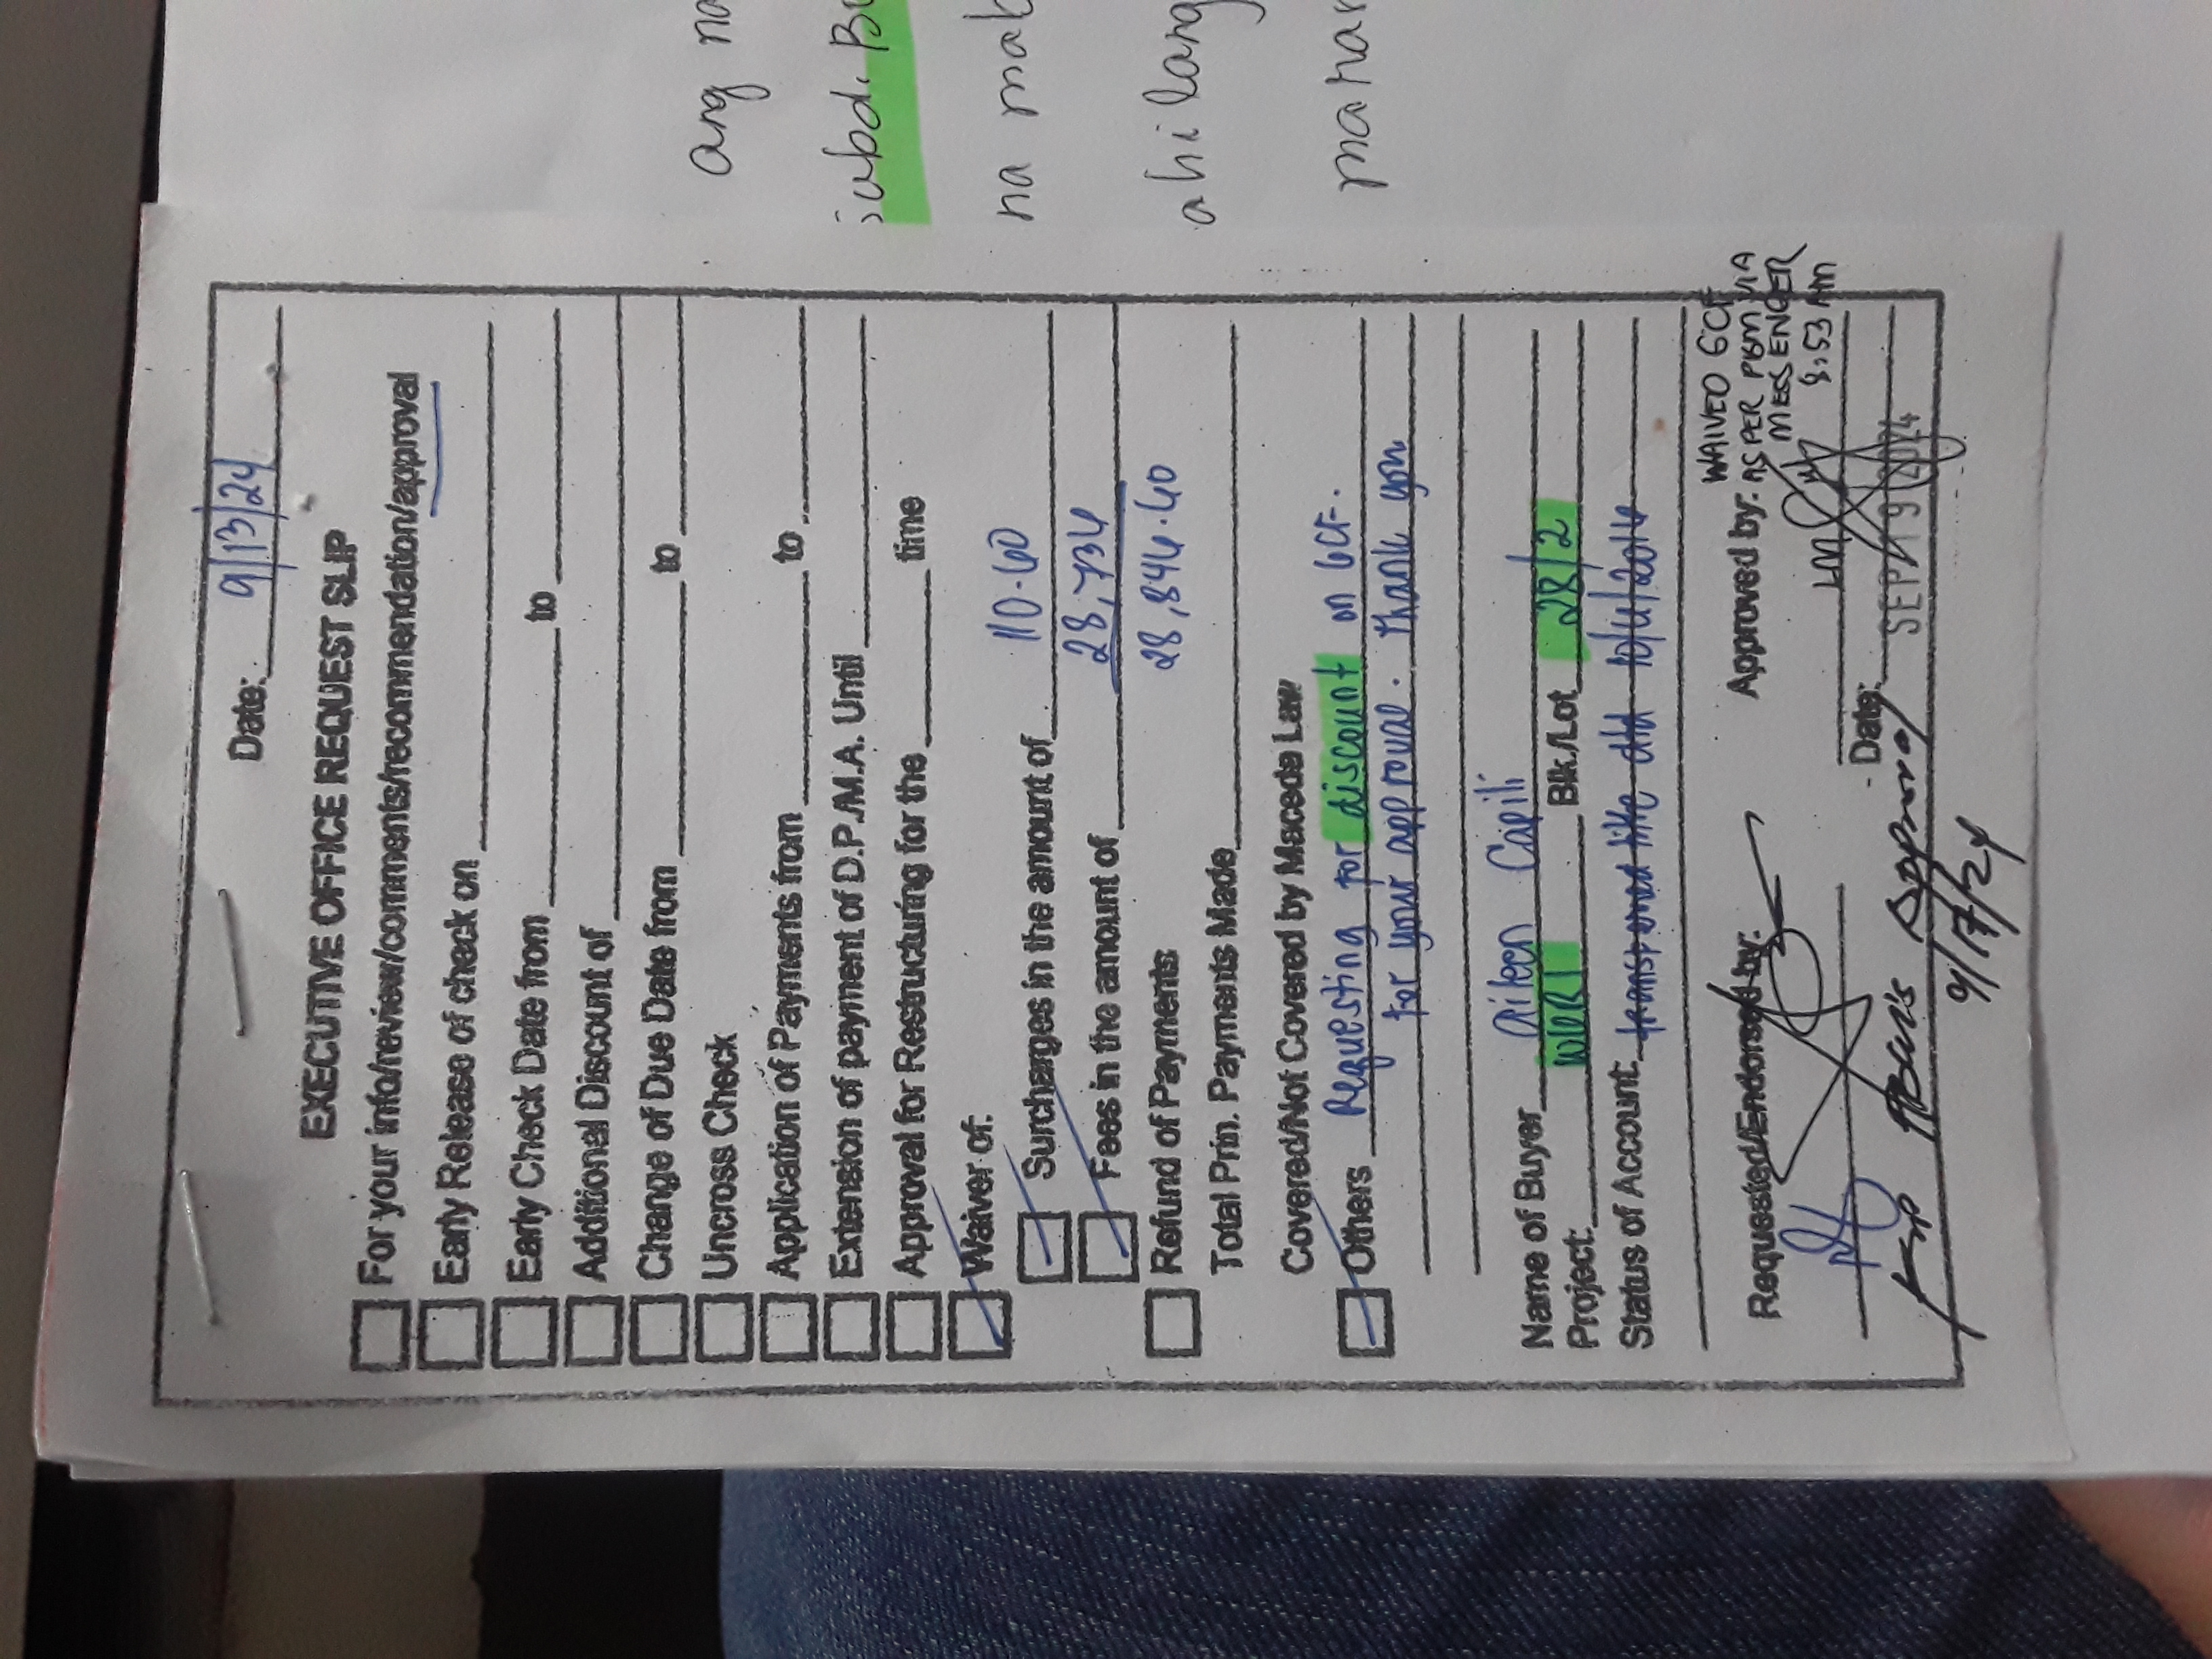 Date: 9/13/24
EXECUTIVE OFFICE REQUEST SLIP
For your info/review/comments/recommendation/approval
Early Release of check on
Early Check Date from to
Additional Discount of
Change of Due Date from to
Uncross Check
Application of Payments from to
Extension of payment of D.P./M.A. Until
Approval for Restructuring for the time
Waiver of:
Surcharges in the amount of 110.60
Fees in the amount of 28,736
Refund of Payments 28,846.60
Total Prin. Payments Made
Covered/Not Covered by Maceda Law
Others Requesting for discount on GCF.
For your approval. Thank you
Name of Buyer Aileen Capili
Project: Blk./Lot 28/2
Status of Account: transferred title dtd
Requested/Endorsed by:
Approved by: WAIVED GCF
AS PER PBM VIA
MESSENGER
8:53 AM
Date: SEP 19 2024
For Approval
9/17/24
ang na
subd. B
na mak
ahilang